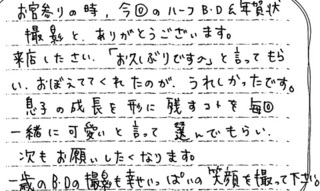 お宮参りの時、今回のハーフB・D&年賀状
撮影と、ありがとうございます。
来店したさい、「お久しぶりですっ」と言ってもら
い、おぼえててくれたのが、うれしかったです。
息子の成長を形に残すコトを毎回
一緒に可愛いと言って選んでもらい、
次もお願いしたくなります。
一歳のB・Dの撮影も幸せいっぱいの笑顔を撮って下さい